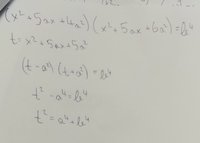 (x² + 5ax + 4a²)(x² + 5ax + 6a²) = b⁴
t = x² + 5ax + 5a²
(t - a²)(t + a²) = b⁴
t² - a⁴ = b⁴
t² = a⁴ + b⁴